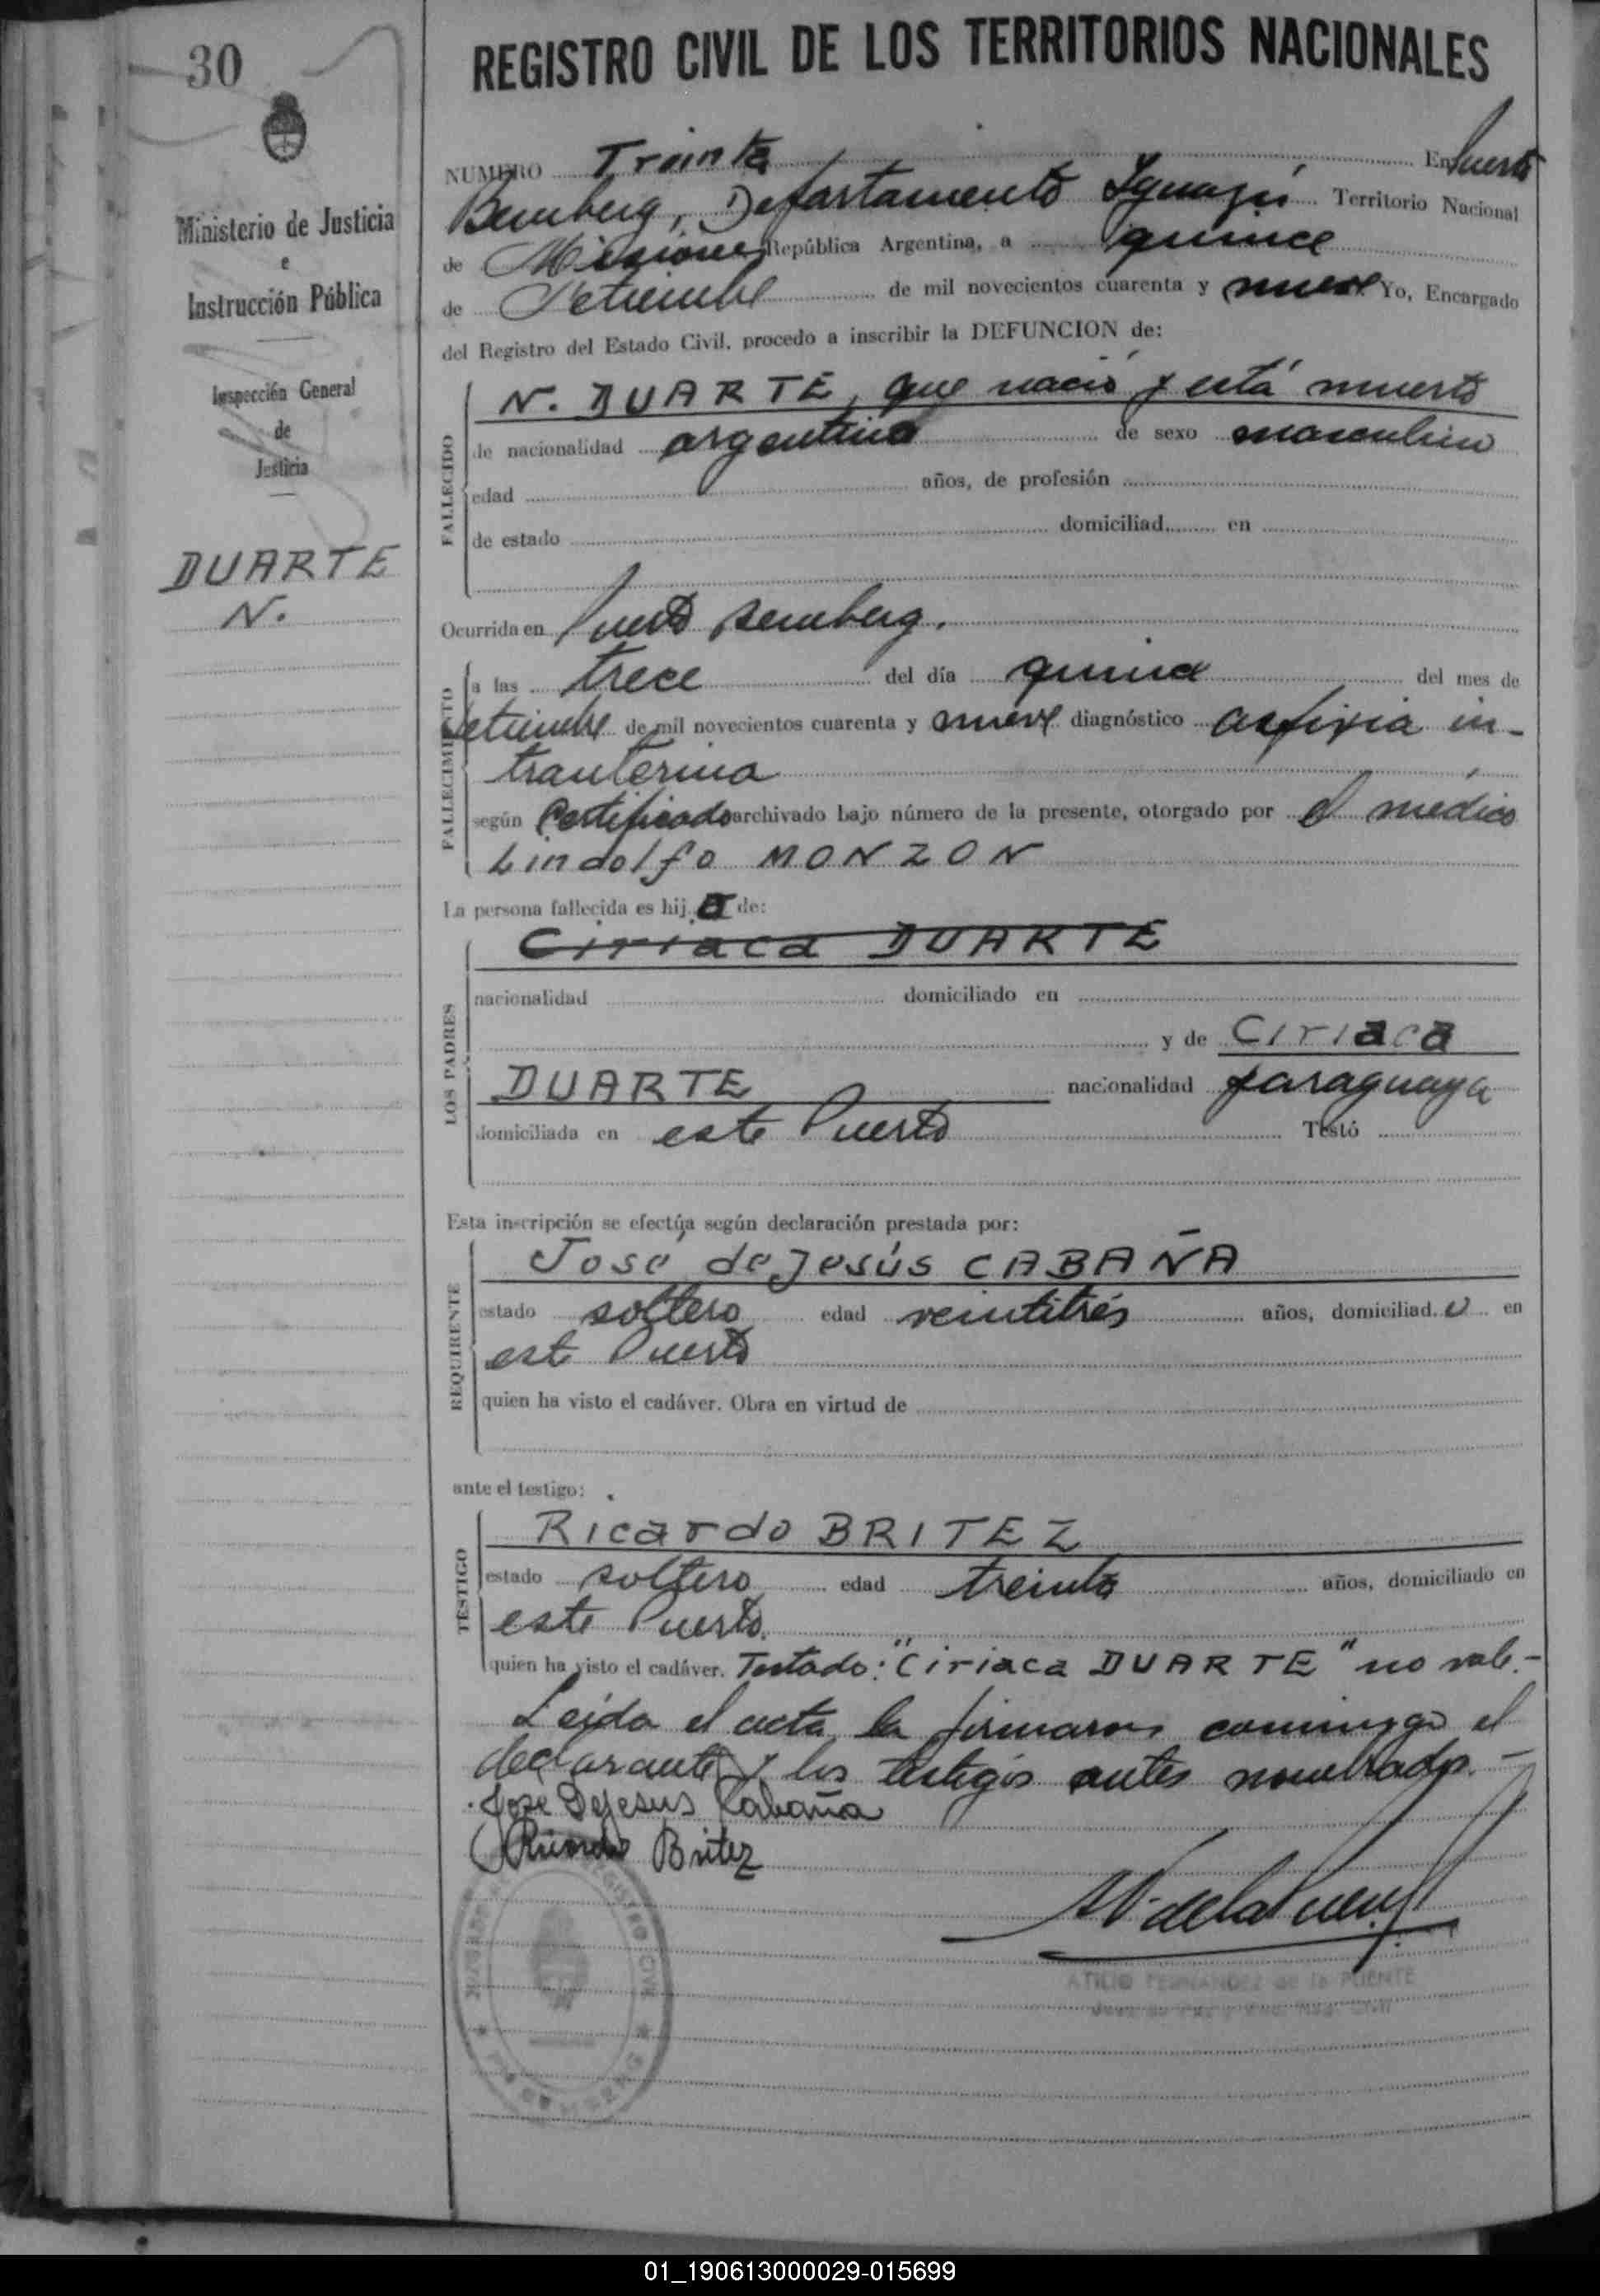 30
Ministerio de Justicia
e
Instrucción Pública
Inspección General
de
Justicia
DUARTE
N.
REGISTRO CIVIL DE LOS TERRITORIOS NACIONALES
NUMERO Treinta En Puerto
Bemberg, Departamento Iguazú Territorio Nacional
de Misiones República Argentina, a quince
de Setiembre de mil novecientos cuarenta y nueve Yo, Encargado
del Registro del Estado Civil, procedo a inscribir la DEFUNCION de:
FALLECIDO
N. DUARTE, que nació y está muerto
de nacionalidad argentino de sexo masculino
edad años, de profesión
de estado domiciliad en
Ocurrida en Puerto Bemberg.
FALLECIMIENTO
a las trece del día quince del mes de
Setiembre de mil novecientos cuarenta y nueve diagnóstico asfixia in-
trauterina
según certificado archivado bajo número de la presente, otorgado por el médico
Lindolfo MONZON
La persona fallecida es hij o de:
LOS PADRES
Ciriaca DUARTE
nacionalidad domiciliado en
y de Ciriaca
DUARTE nacionalidad paraguaya
domiciliada en este Puerto Testó
Esta inscripción se efectúa según declaración prestada por:
REQUIRENTE
José de Jesús CABAÑA
estado soltero edad veintitrés años, domiciliad o en
este Puerto
quien ha visto el cadáver. Obra en virtud de
ante el testigo:
TESTIGO
Ricardo BRITEZ
estado soltero edad treinta años, domiciliado en
este Puerto.
quien ha visto el cadáver. Testado: "Ciriaca DUARTE" no vale.-
Leída el acta la firmaron conmigo el
declarante y los testigos antes nombrados.-
Jose Dejesus Cabaña
Ricardo Britez
ATILIO FERNANDEZ de la PUENTE
01_190613000029-015699